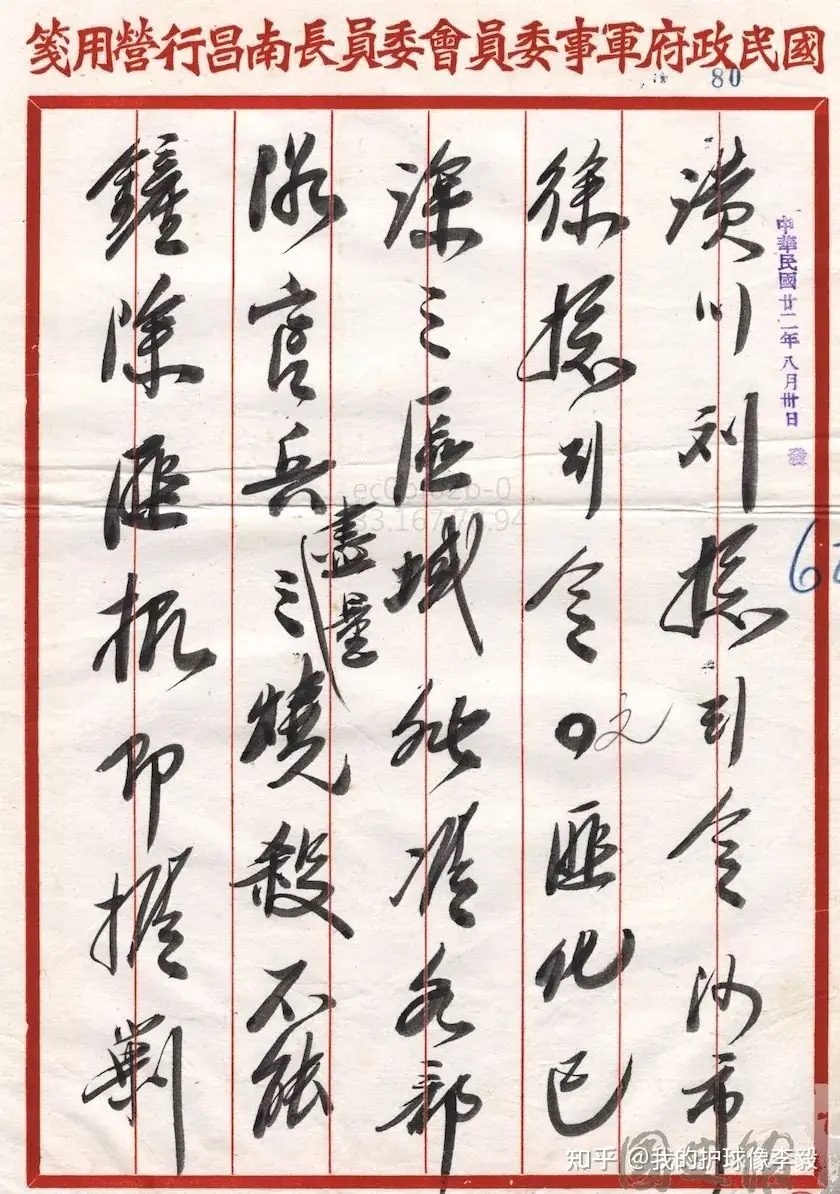 國民政府軍事委員會委員長南昌行營用箋
80
中華民國廿二年八月卅日
發
潢川刘總司令沙市
徐總司令 匪化已
深之區域非准各部
隊官兵之盡量燒殺不能
鏟除匪根即擬劃
知乎 @我的护球像李毅